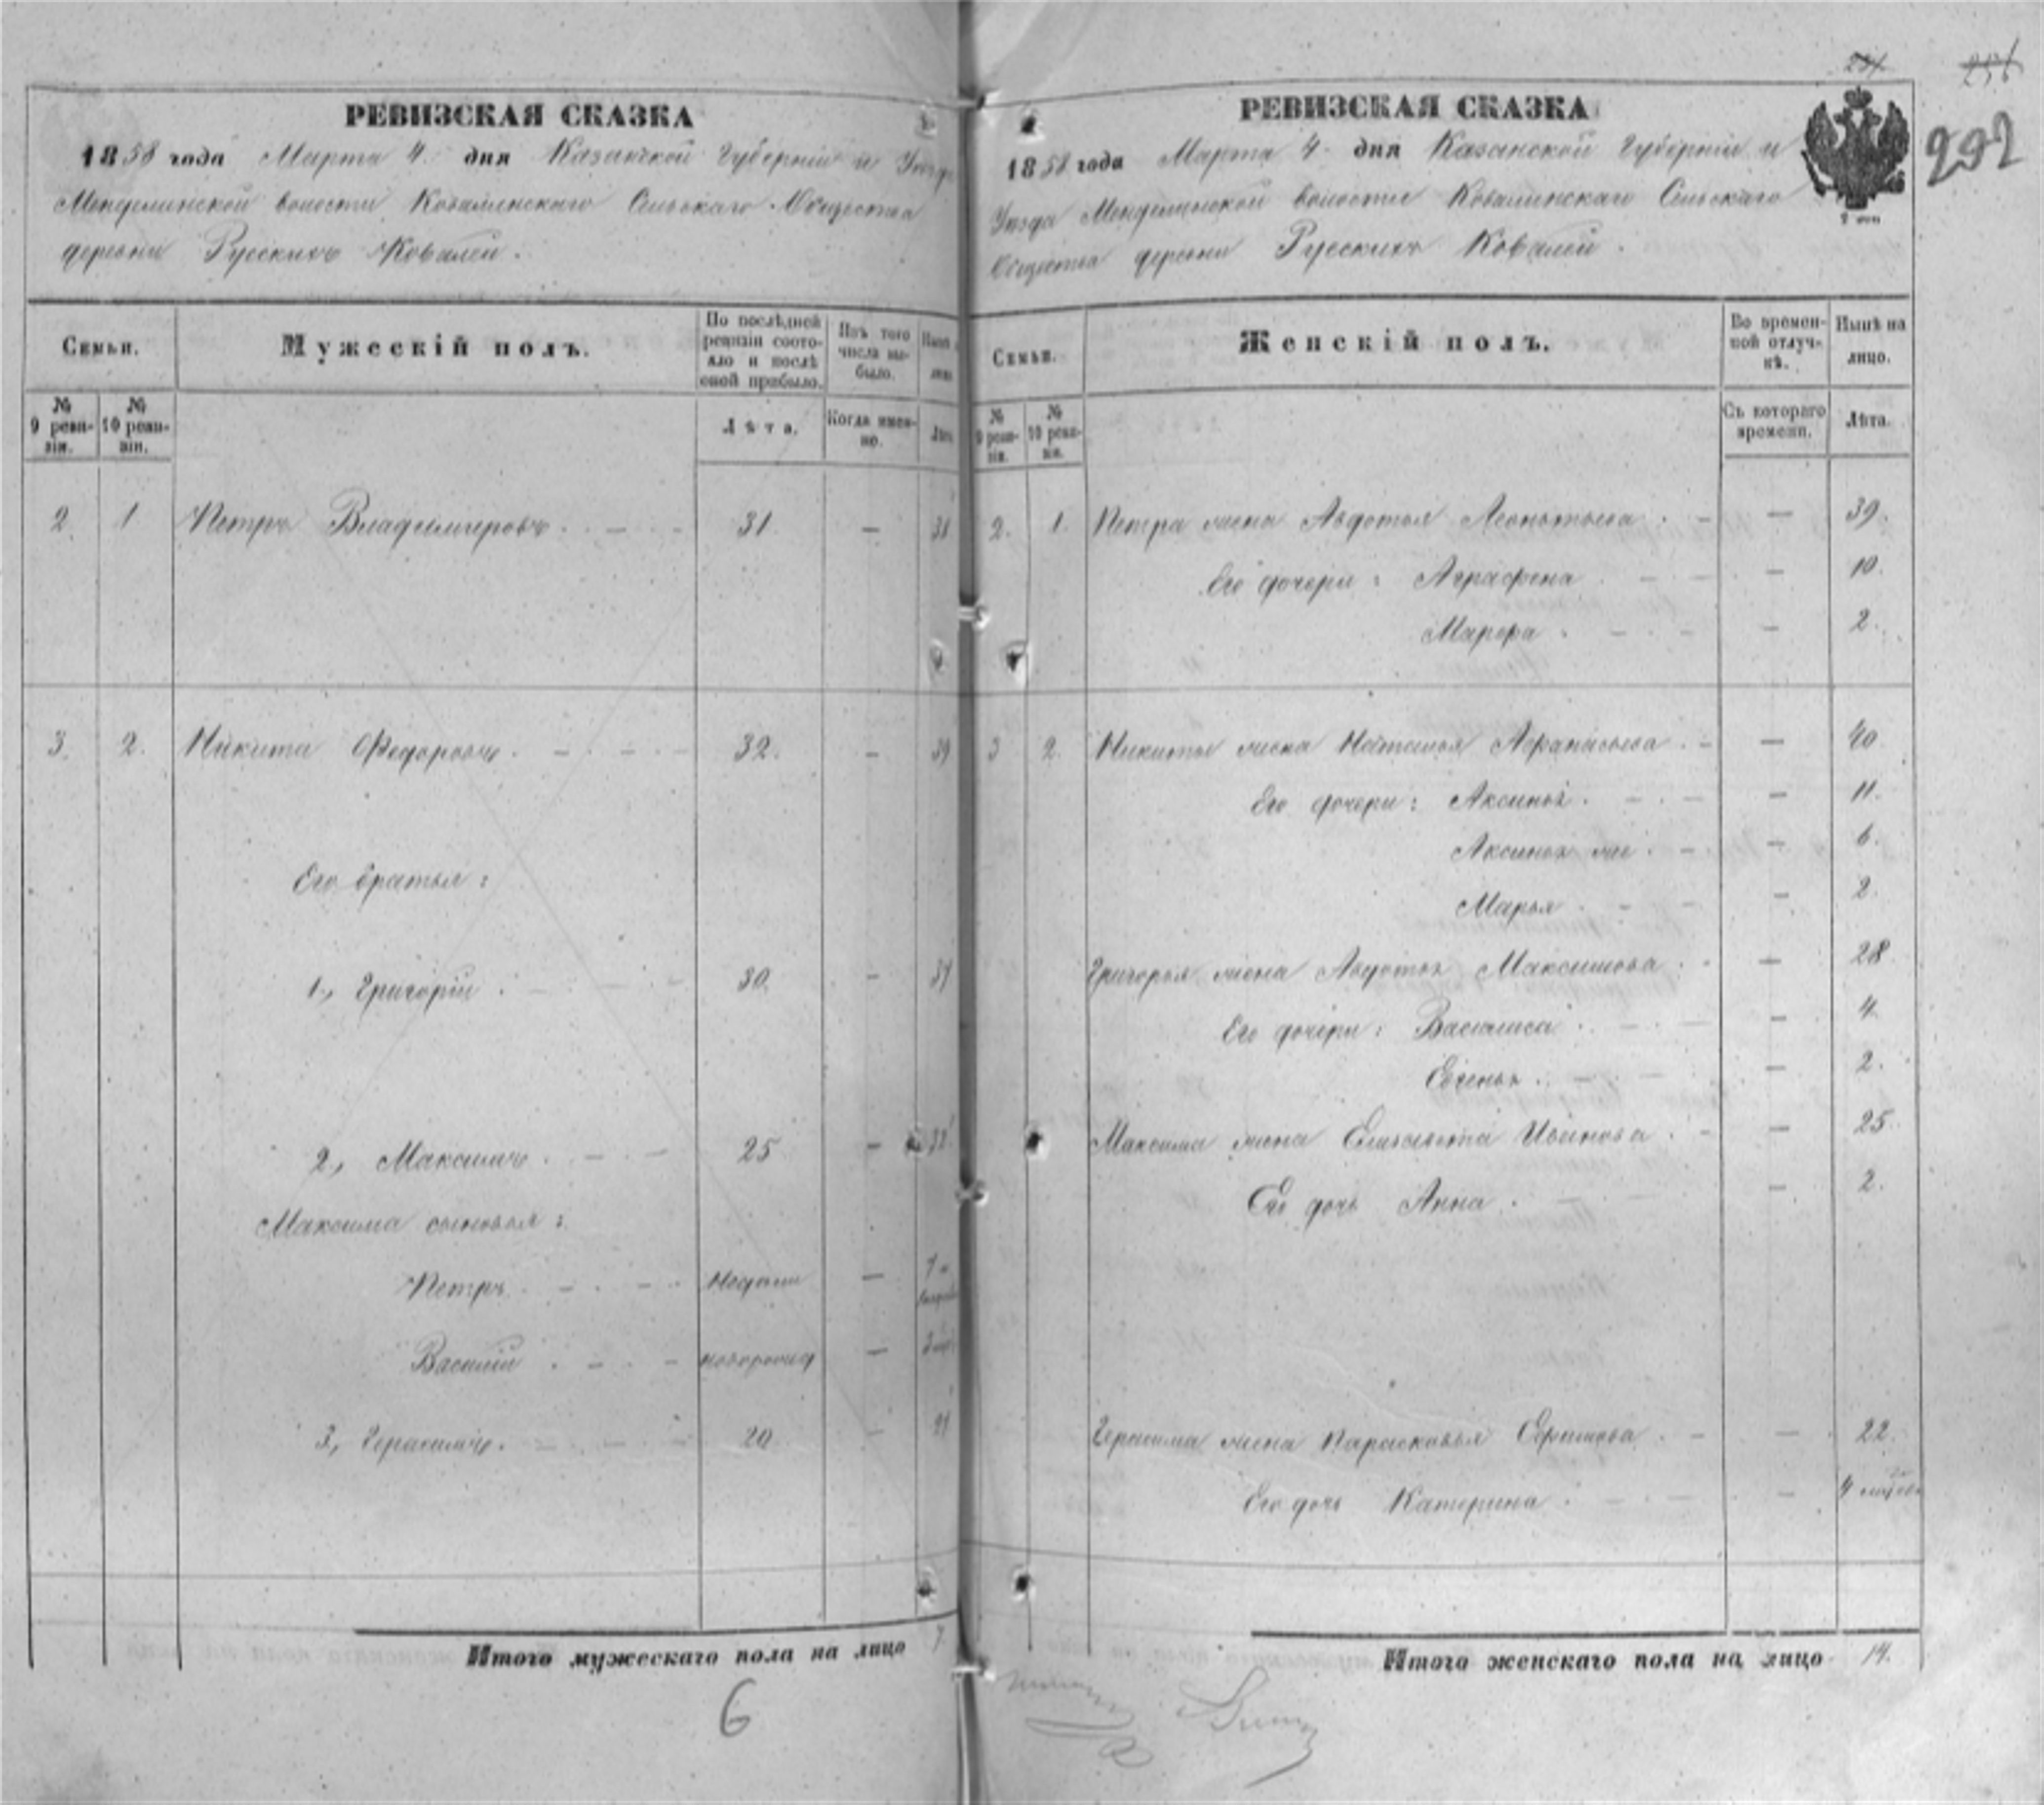 РЕВИЗСКАЯ СКАЗКА
1858 года Марта 4 дня Казанской Губерніи и Уезда
Менделинской волости Ковалинскаго Сельскаго Общества
деревни Русскихъ Ковалей.
Семьи.
Мужескій полъ.
По послѣдней ревизіи состояло и послѣ оной прибыло.
Изъ того числа выбыло.
№ 9 ревизіи.
№ 10 ревизіи.
Лѣта.
Когда именно.
Лѣта
2 1 Петръ Владимировъ 31 —
3. 2. Никита Федоровъ 32. — 39
Его братья:
1, Григорій 30. —
2, Максимъ 25 —
Максима сыновья:
Петръ —
Василій новорожд —
3, Герасимъ 20 —
Итого мужескаго пола на лицо 7
6
РЕВИЗСКАЯ СКАЗКА
1858 года Марта 4 дня Казанской Губерніи и
Уезда Менделинской волости Ковалинскаго Сельскаго
Общества деревни Русскихъ Ковалей.
292
Семьи.
Женскій полъ.
Во временной отлучкѣ.
Нынѣ на лицо.
№ 9 ревизіи.
№ 10 ревизіи.
Съ котораго времени.
Лѣта.
2. 1. Петра жена Авдотья Леонтьева — 39.
Его дочери: Аграфена — 10.
Марфа — 2.
3 2. Никиты жена Наталья Афанасьева — 40
Его дочери: Аксинья — 11.
Аксинья — 6.
Марья — 2.
Григорья жена Авдотья Максимова — 28
Его дочери: Василиса — 4
Евгенья — 2.
Максима жена Елизавета Иванова — 25
Его дочь Анна — 2.
Герасима жена Парасковья Ефимова — 22.
Его дочь Катерина — 4
Итого женскаго пола на лицо 14.